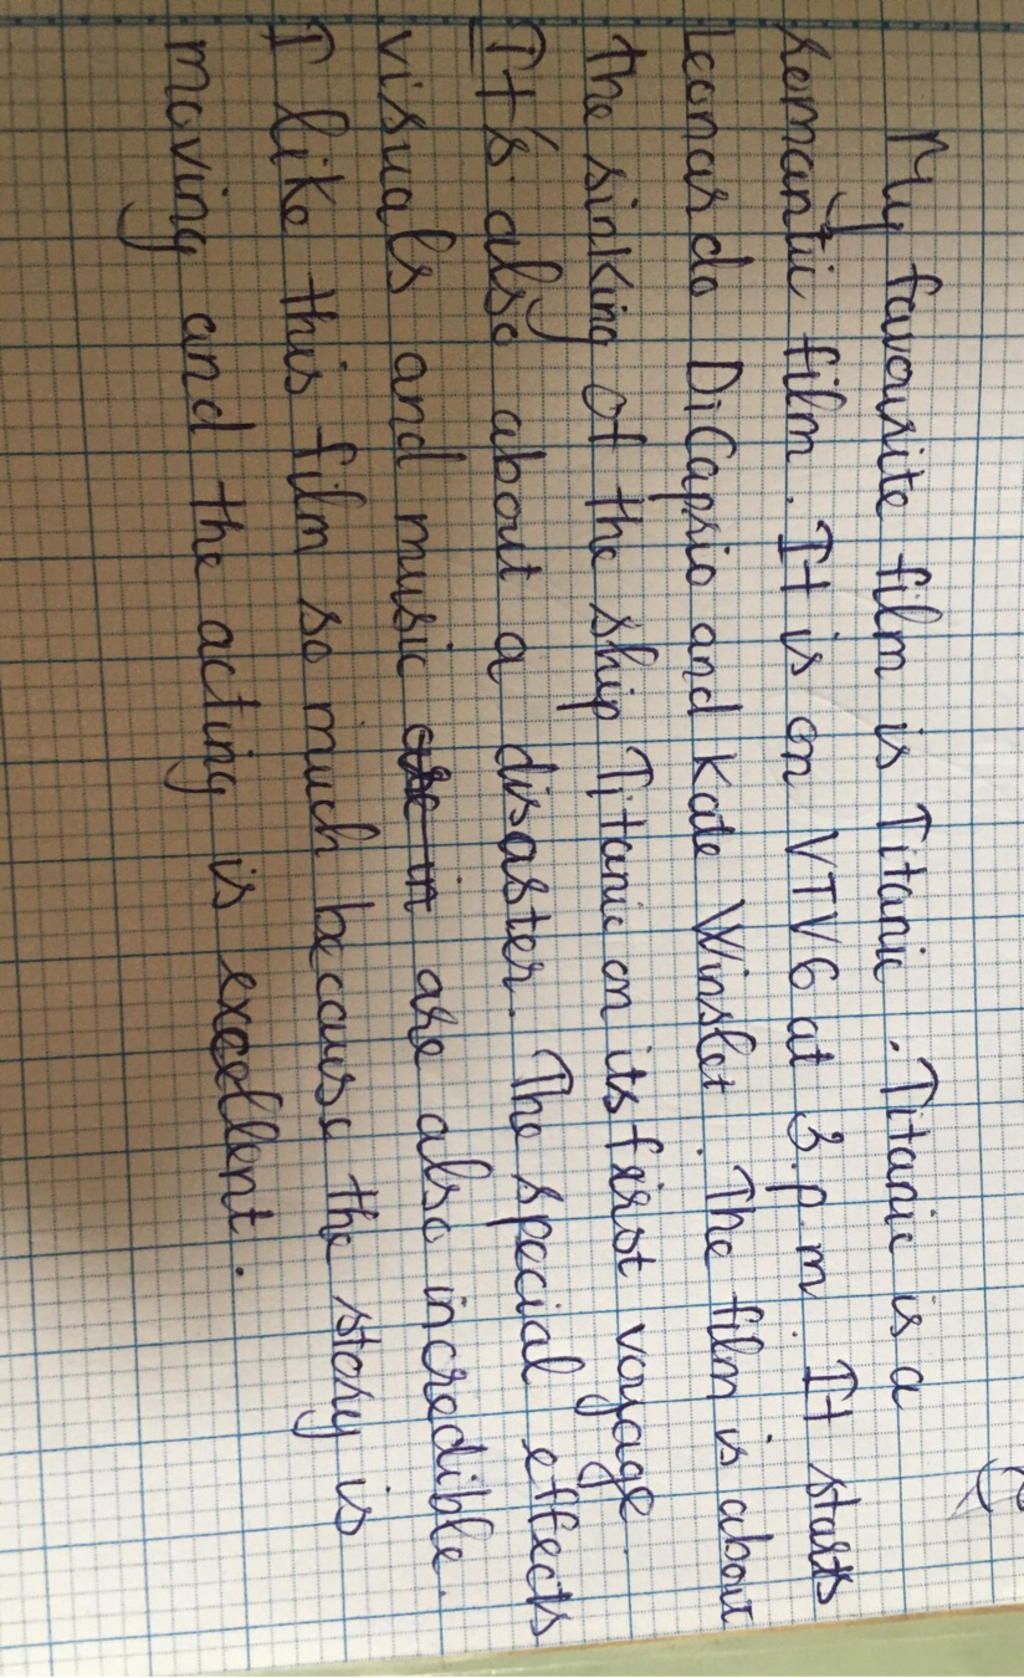 My favourite film is Titanic. Titanic is a
romantic film. It is on VTV6 at 3.p.m. It starts
Leonardo DiCaprio and Kate Winslet. The film is about
the sinking of the ship Titanic on its first voyage.
It's also about a disaster. The special effects
visuals and music are in are also incredible.
I like this film so much because the story is
moving and the acting is excellent.